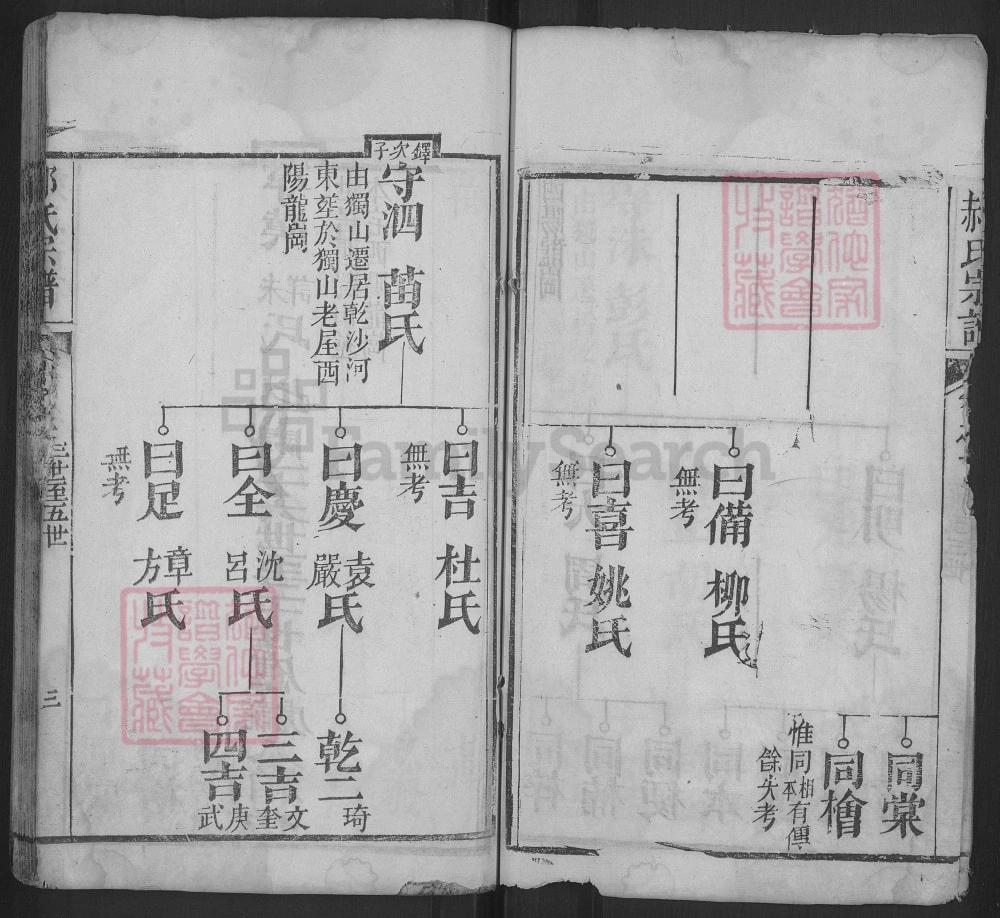 郝氏宗譜
同棠
同檜
惟同相本有傳
餘失考
曰備 柳氏
無考
曰喜 姚氏
無考
鐸次子
守泗 苗氏
由獨山遷居乾沙河
東塟於獨山老屋西
陽龍崗
曰吉 杜氏
無考
曰慶 袁嚴氏
乾二 琦
曰全 沈呂氏
三吉 文奎
四吉 庚武
曰足 章方氏
無考
氏宗譜
三世至五世
三
FamilySearch